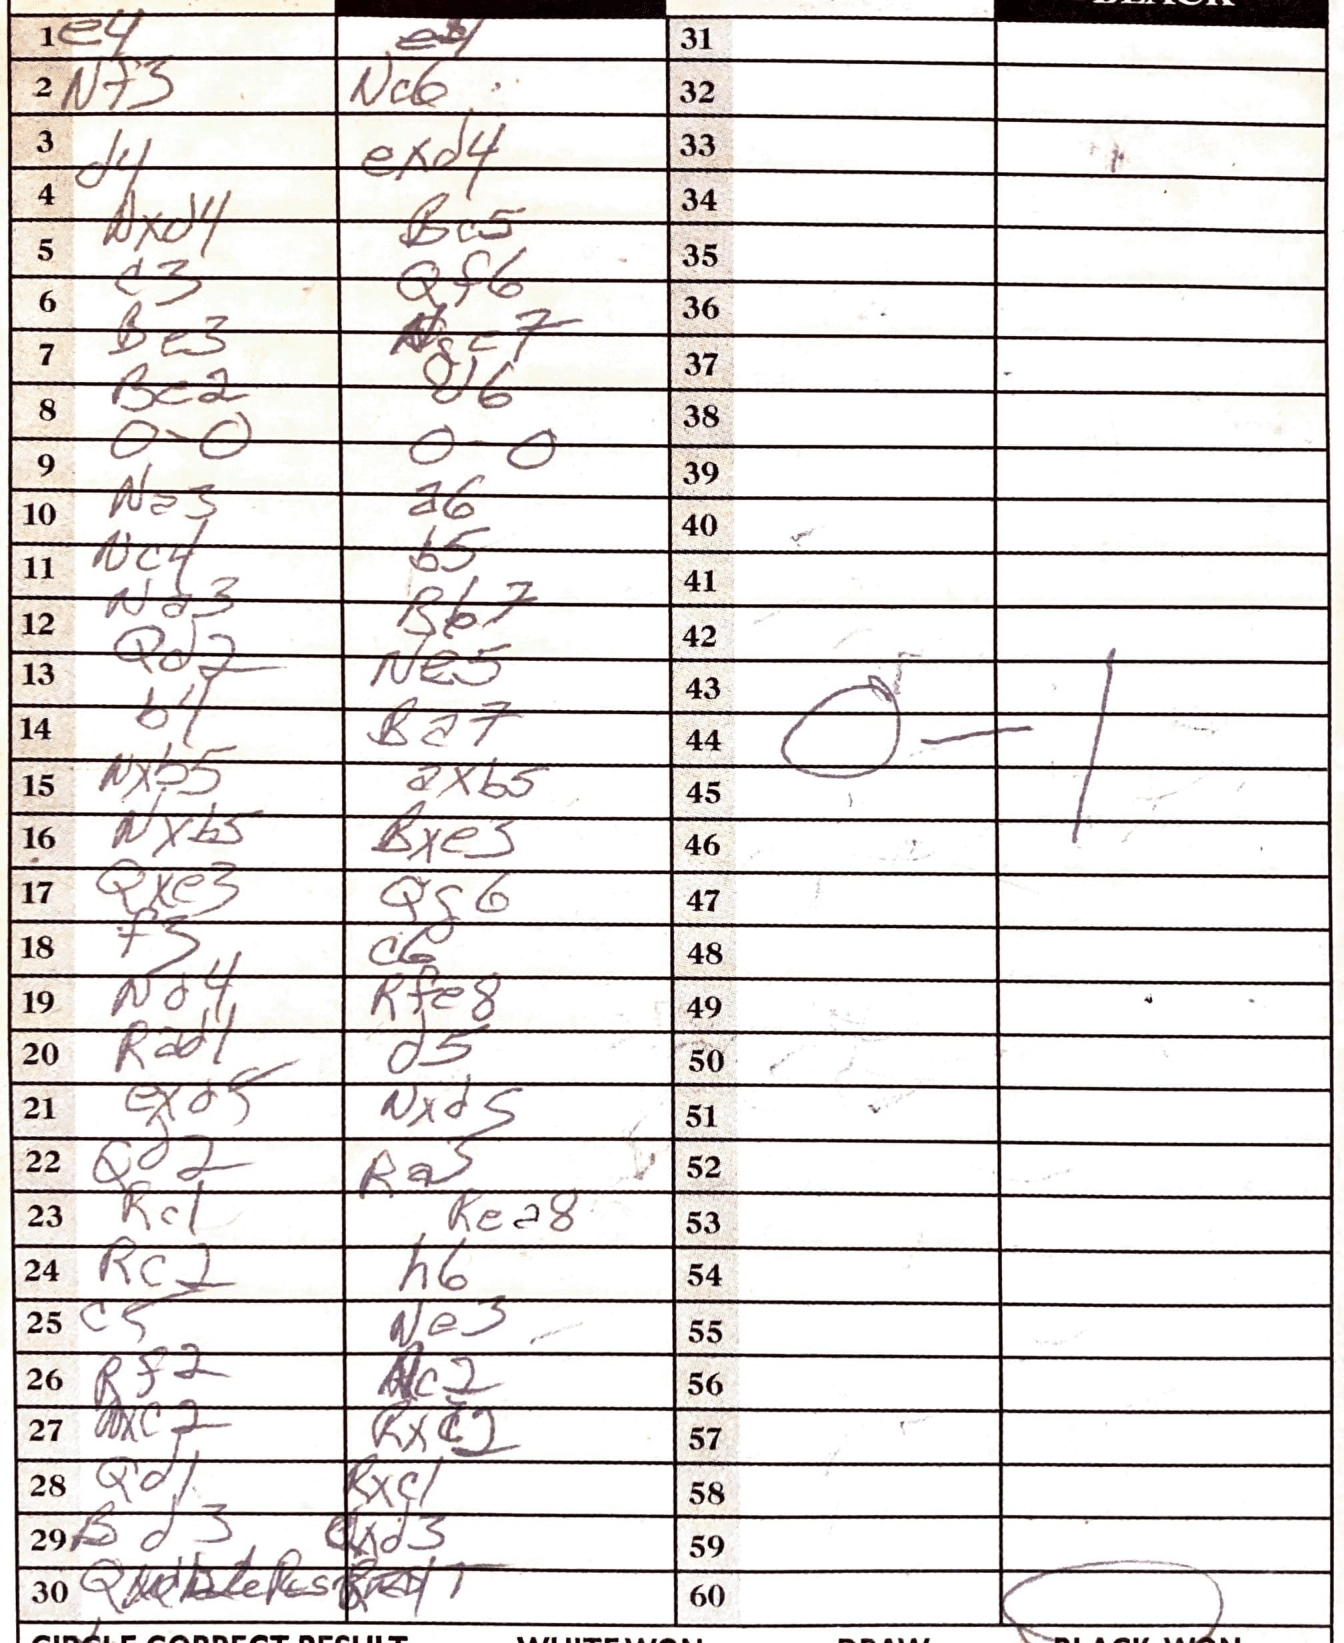 BLACK
1 e4 31
2 Nf3 Nc6 32
3 d4 exd4 33
4 Nxd4 Bc5 34
5 c3 Qf6 35
6 Be3 Nge7 36
7 Be2 d6 37
8 0-0 0-0 38
9 Na3 a6 39
10 Nc4 b5 40
11 Na3 Bb7 41
12 Qd2 Ne5 42
13 b4 Ba7 43
14 Nxb5 axb5 44
0-1
15 Nxb5 Bxe3 45
16 Qxe3 Qg6 46
17 f3 c6 47
18 Nd4 Rfe8 48
19 Rad1 d5 49
20 exd5 Nxd5 50
21 Qd2 Ra3 51
22 Rc1 Rea8 52
23 Rc2 h6 53
24 c5 Ne3 54
25 Rf2 Nc2 55
26 Nxc2 Rxc2 56
27 Qd1 Rxc1 57
28 Bd3 Qxd3 58
29 59
30 60
CIRCLE CORRECT RESULT WHITE WON DRAW BLACK WON